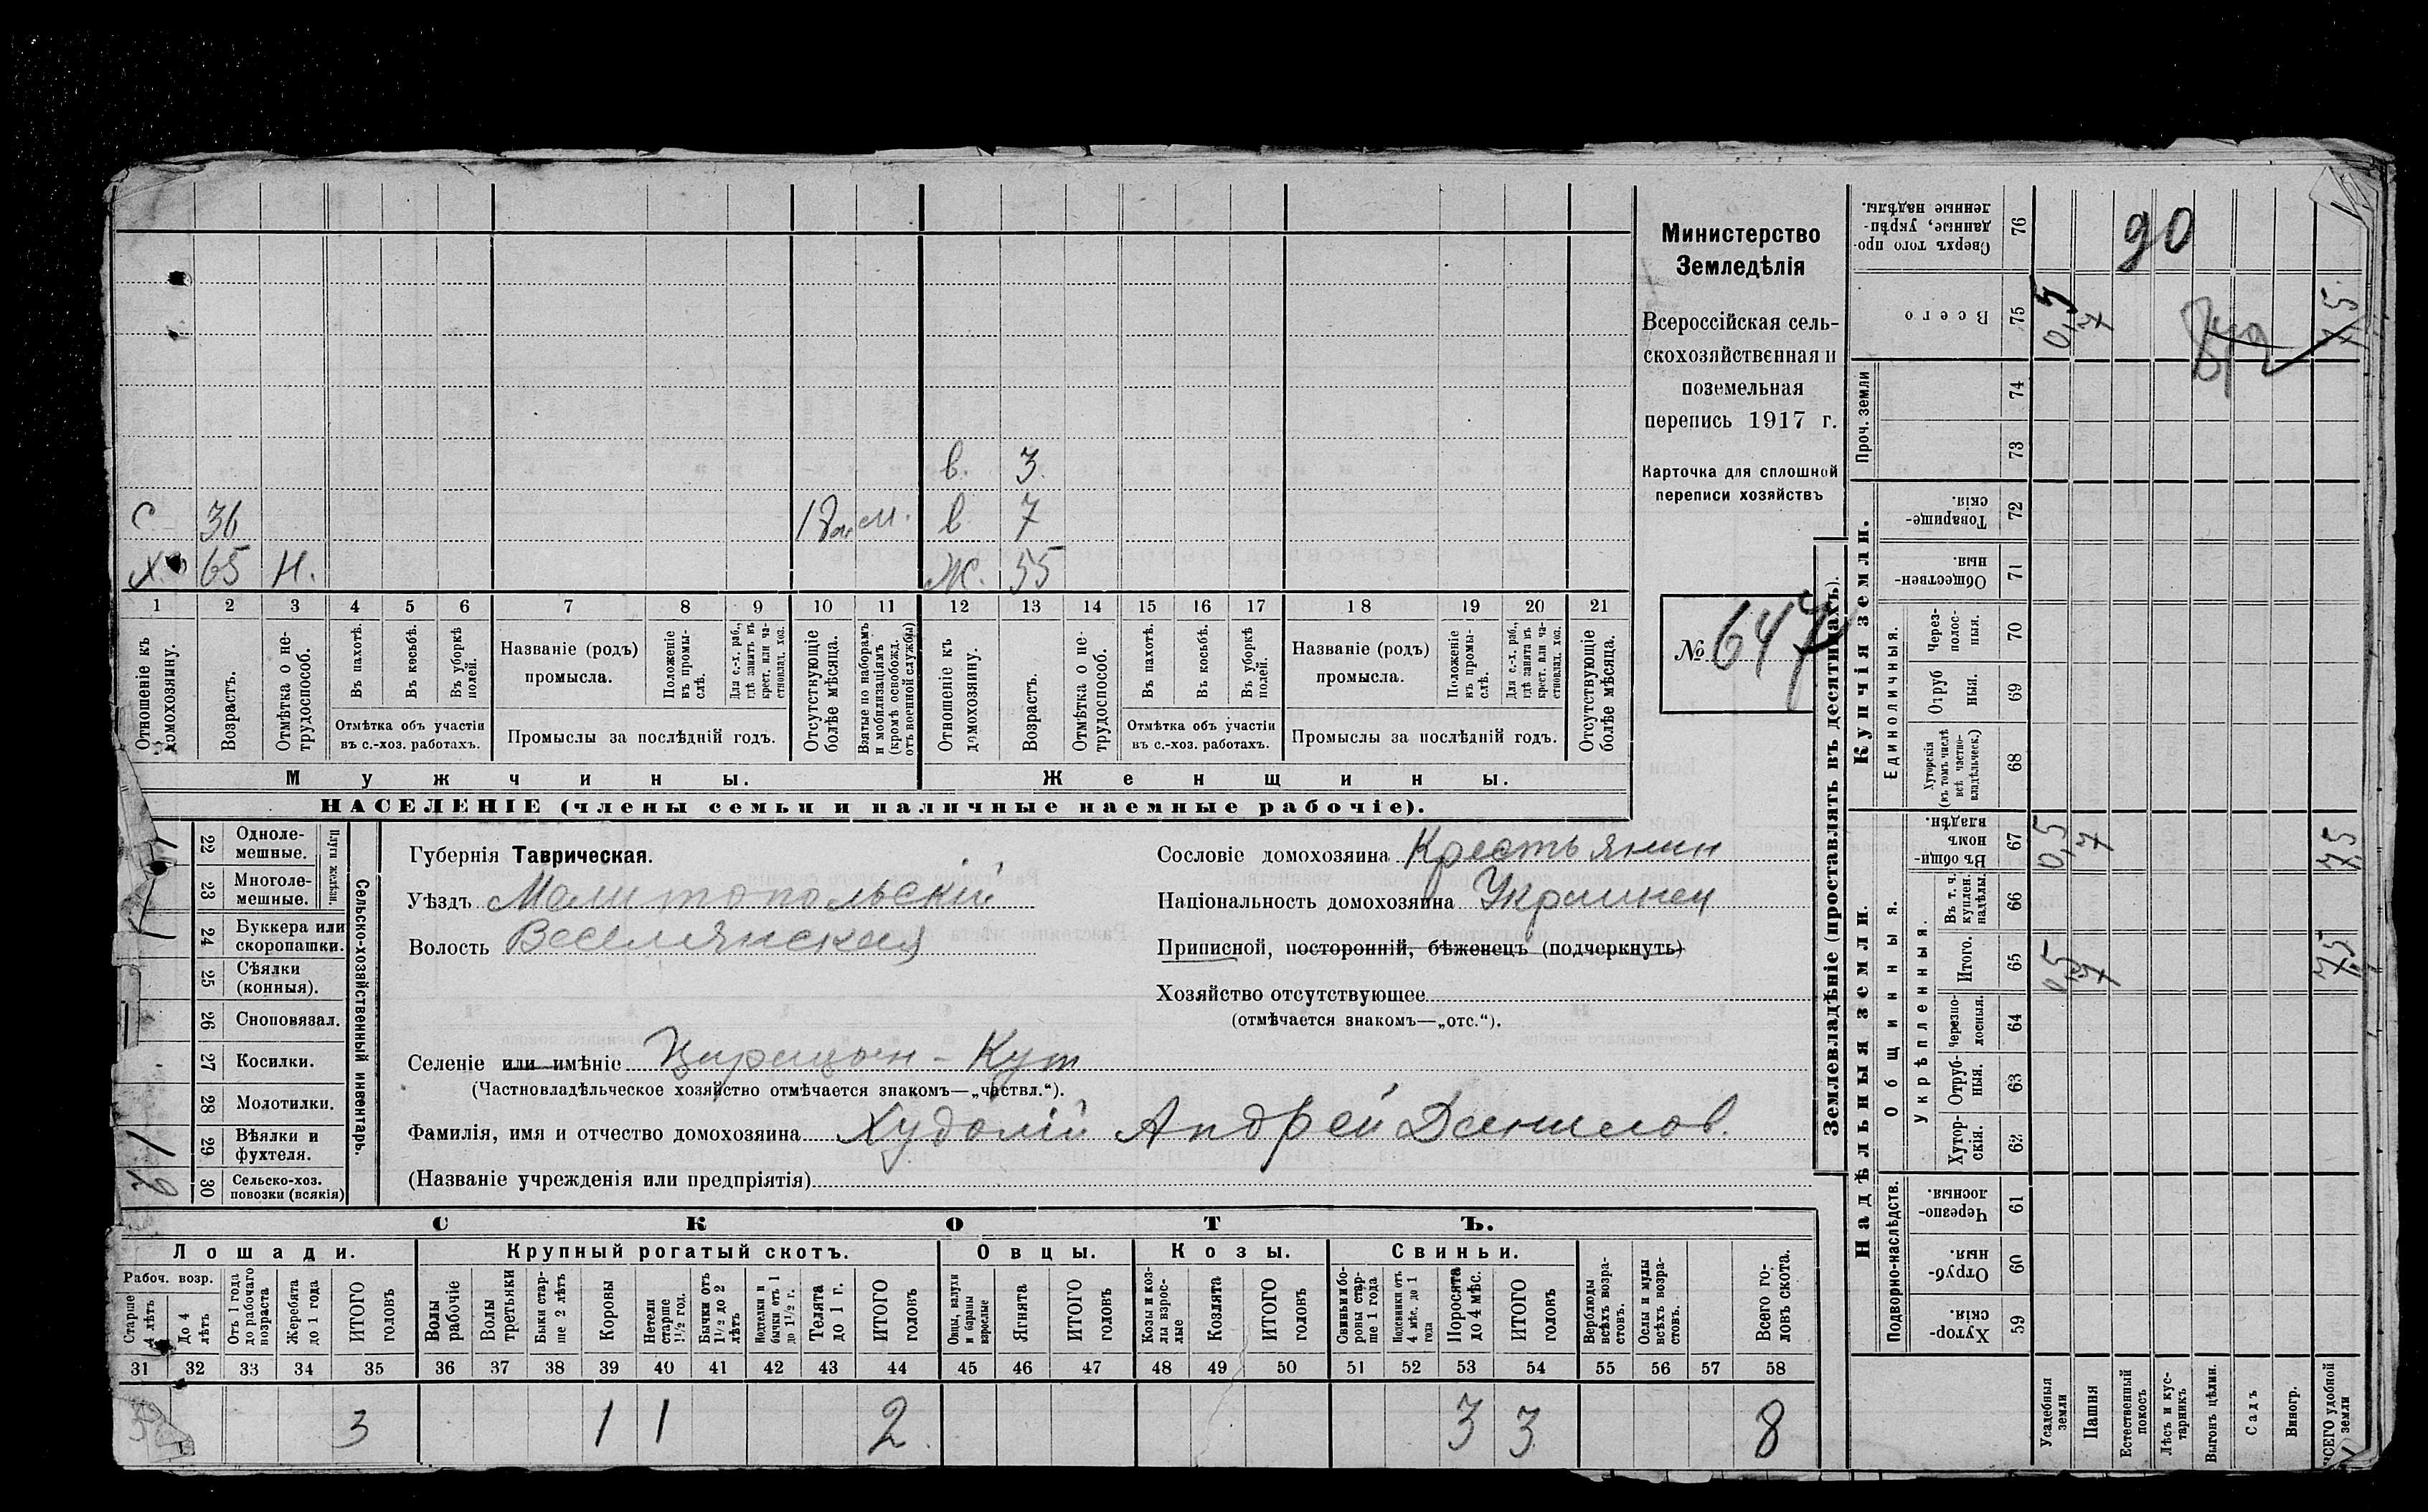 Министерство
Земледѣлія
Всероссійская сель-
скохозяйственная и
поземельная
перепись 1917 г.
Карточка для сплошной
переписи хозяйствъ
№ 647
в. 3
С 36 м. в 7
Х. 65 Н. Ж. 55
1 2 3 4 5 6 7 8 9 10 11 12 13 14 15 16 17 18 19 20 21
Отношеніе къ домохозяину.
Возрастъ.
Отмѣтка о не-трудоспособ.
Въ пахотѣ.
Въ косьбѣ.
Въ уборкѣ полей.
Отмѣтка объ участіи
въ с.-хоз. работахъ.
Названіе (родъ)
промысла.
Положеніе въ промы-слѣ.
Для с.-х. раб., гдѣ занятъ въ крест. или ча-стновлад. хоз.
Промыслы за послѣдній годъ.
Отсутствующіе болѣе мѣсяца.
Взятые по наборамъ и мобилизаціямъ (кромѣ освобожд. отъ военной службы)
Отношеніе къ домохозяину.
Возрастъ.
Отмѣтка о не-трудоспособ.
Въ пахотѣ.
Въ косьбѣ.
Въ уборкѣ полей.
Отмѣтка объ участіи
въ с.-хоз. работахъ.
Названіе (родъ)
промысла.
Положеніе въ промы-слѣ.
Для с.-х. раб., гдѣ занята въ крест. или ча-стновлад. хоз.
Промыслы за послѣдній годъ.
Отсутствующіе болѣе мѣсяца.
Мужчины. Женщины.
НАСЕЛЕНІЕ (члены семьи и наличные наемные рабочіе).
22 Одноле-мешные.
23 Многоле-мешные.
Плуги желѣзн.
24 Буккера или скоропашки.
25 Сѣялки (конныя).
26 Сноповязал.
27 Косилки.
28 Молотилки.
1 29 Вѣялки и фухтеля.
30 Сельско-хоз. повозки (всякія)
Сельско-хозяйственный инвентарь.
Губернія Таврическая.
Уѣздъ Мелитопольскій
Волость Веселянская
Сословіе домохозяина Крестьянин
Національность домохозяина Украинец
Приписной, посторонній, бѣженецъ (подчеркнуть)
Хозяйство отсутствующее
(отмѣчается знакомъ—„отс.“).
Селеніе или имѣніе Царицын-Кут
(Частновладѣльческое хозяйство отмѣчается знакомъ—„частвл.“).
Фамилія, имя и отчество домохозяина Худолій Андрей Данилов.
(Названіе учрежденія или предпріятія)
СКОТЪ.
Лошади. Крупный рогатый скотъ. Овцы. Козы. Свиньи.
Рабоч. возр.
Старше 4 лѣтъ
До 4 лѣтъ
Отъ 1 года до рабочаго возраста
Жеребята до 1 года
ИТОГО головъ
Волы рабочіе
Волы третьяки
Быки стар-ше 2 лѣтъ
Коровы
Нетели старше 1½ год.
Бычки отъ 1½ до 2 лѣтъ
Подтелки и бычки отъ 1 до 1½ г.
Телята до 1 г.
ИТОГО головъ
Овцы, валухи и бараны взрослые
Ягнята
ИТОГО головъ
Козы и коз-лы взрос-лые
Козлята
ИТОГО головъ
Свиньи и бо-ровы стар-ше 1 года
Подсвинки отъ 4 мѣс. до 1 года
Поросята до 4 мѣс.
ИТОГО головъ
Верблюды всѣхъ возра-стовъ.
Ослы и мулы всѣхъ возра-стовъ.
Всего го-ловъ скота.
31 32 33 34 35 36 37 38 39 40 41 42 43 44 45 46 47 48 49 50 51 52 53 54 55 56 57 58
3 3 1 1 2 3 3 8
Землевладѣніе (проставлять въ десятинахъ).
Купчія земли.
Надѣльныя земли.
Сверхъ того про-данные, укрѣп-ленные надѣлы. 76
90
Всего 75 0,5 7 7,5
Проч. земли 74
73
Товарище-скія. 72
Обществен-ныя. 71
Единоличныя.
Через-полос-ныя. 70
Отруб ныя. 69
Хуторскія (въ томъ числѣ всѣ частно-владѣльческ.) 68
Общинныя.
Въ общи-номъ владѣн. 67 0,5 7 7,5
Укрѣпленныя.
Въ т. ч. куплен. надѣлы. 66
Итого. 65 0,5 7 7,5
Черезпо-лосныя. 64
Отруб-ныя. 63
Хутор-скія. 62
Подворно-наслѣдств.
Черезпо-лосныя. 61
Отруб-ныя. 60
Хутор-скія. 59
Усадебныя земли
Пашня
Естественный покосъ
Лѣсъ и кус-тарникъ
Выгонъ цѣлин.
Садъ
Виногр.
ВСЕГО удобной земли